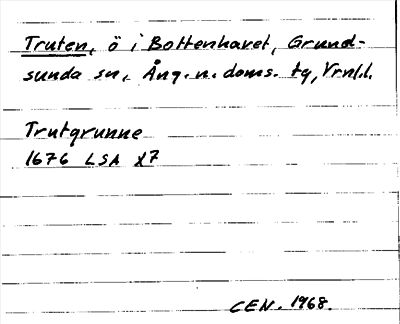 Truten, ö i Bottenhavet, Grund-
sunda sn, Ång. n. doms. tg, Vrnl.l.
Trutgrunne
1676 LSA X7
CEN. 1968.